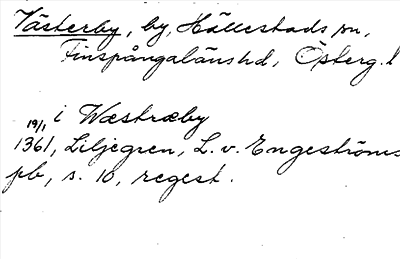 Västerby, by, Hällestads sn,
Finspångalänshd, Österg. l
i Wæstræby
19/1
1361, Liljegren, L. v. Engeströms
pb, s. 10, regest.